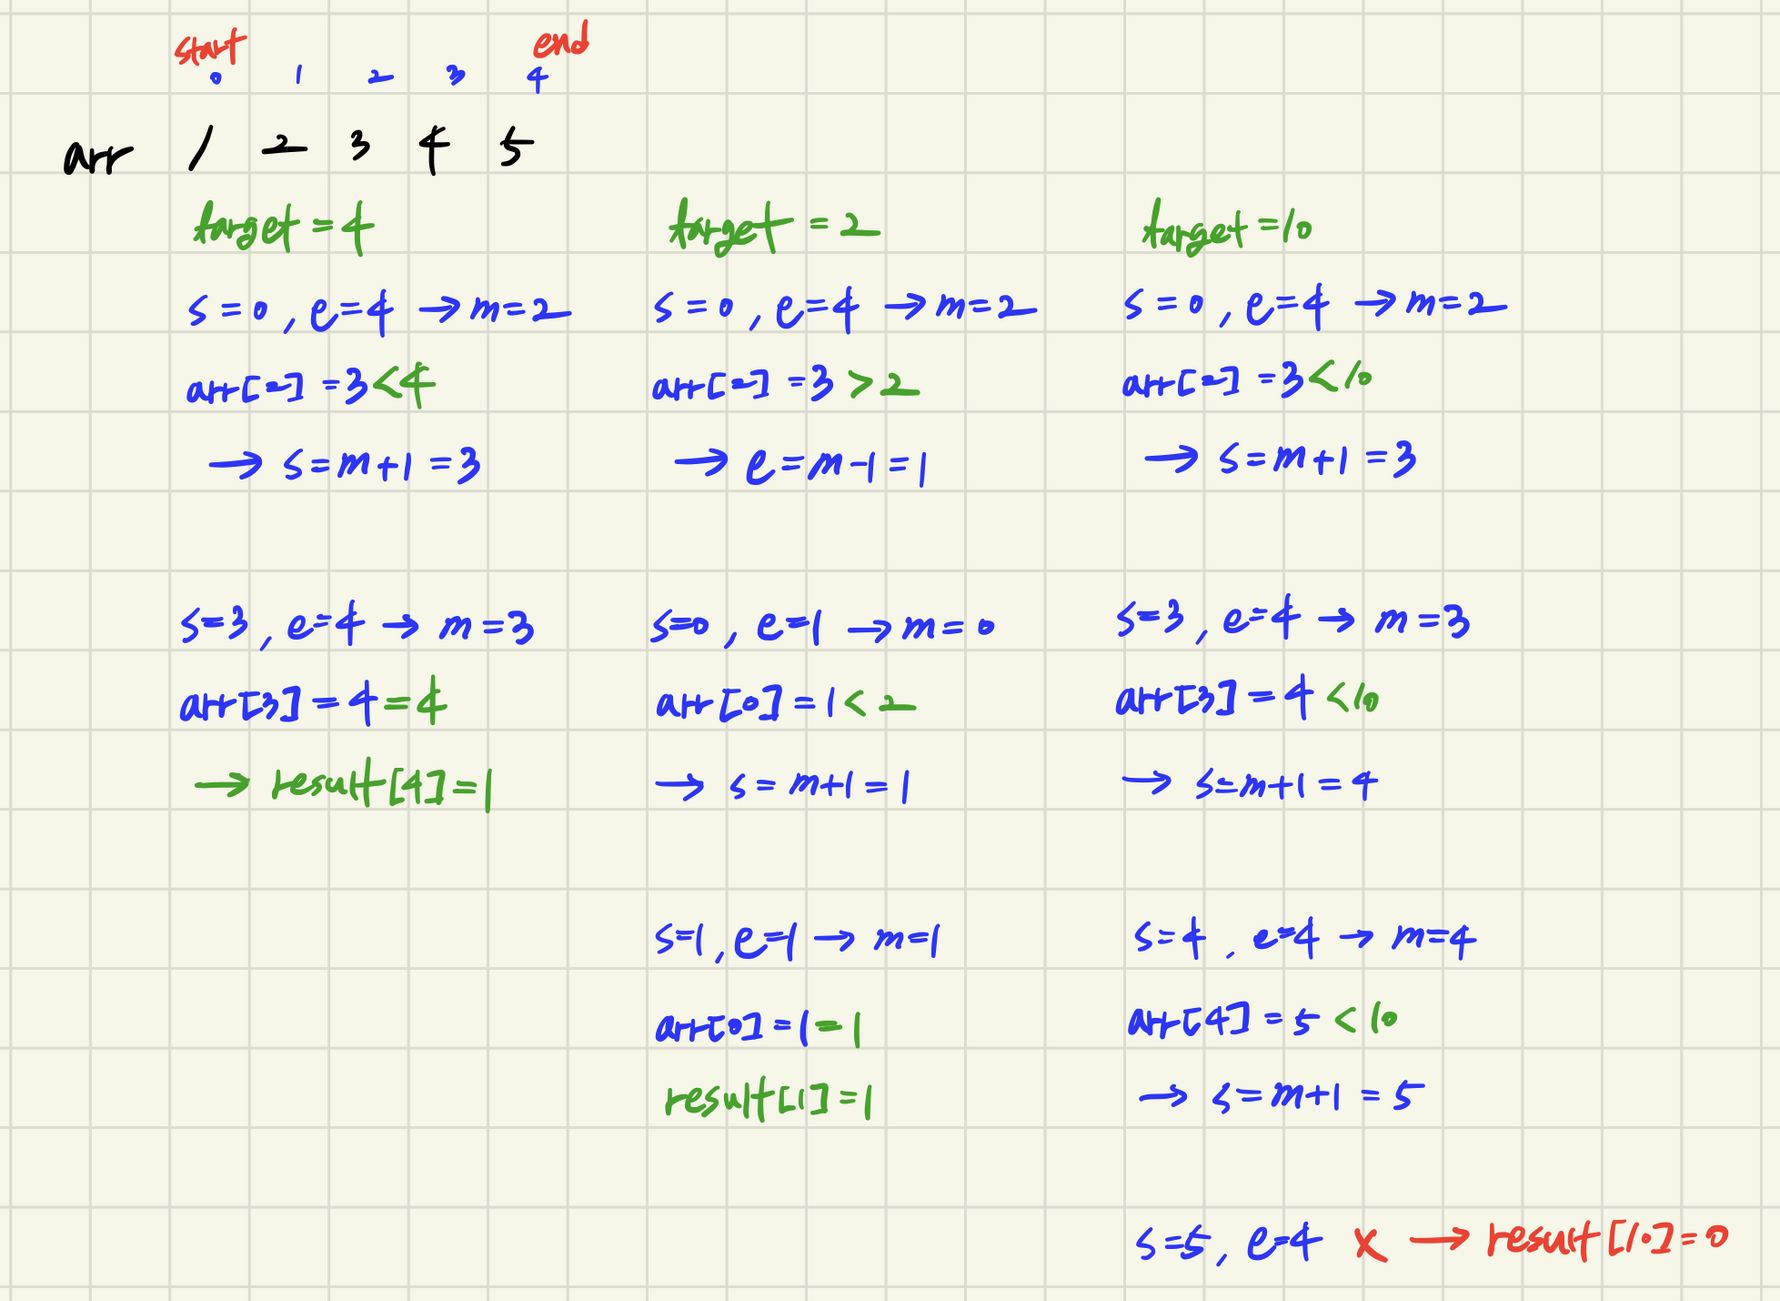 start end
0 1 2 3 4
arr 1 2 3 4 5
target = 4
s = 0 , e = 4 → m = 2
arr[2] = 3 < 4
→ s = m + 1 = 3
s = 3 , e = 4 → m = 3
arr[3] = 4 = 4
→ result[4] = 1
target = 2
s = 0 , e = 4 → m = 2
arr[2] = 3 > 2
→ e = m - 1 = 1
s = 0 , e = 1 → m = 0
arr[0] = 1 < 2
→ s = m + 1 = 1
s = 1 , e = 1 → m = 1
arr[0] = 1 = 1
result[1] = 1
target = 10
s = 0 , e = 4 → m = 2
arr[2] = 3 < 10
→ s = m + 1 = 3
s = 3 , e = 4 → m = 3
arr[3] = 4 < 10
→ s = m + 1 = 4
s = 4 , e = 4 → m = 4
arr[4] = 5 < 10
→ s = m + 1 = 5
s = 5 , e = 4 x → result[10] = 0